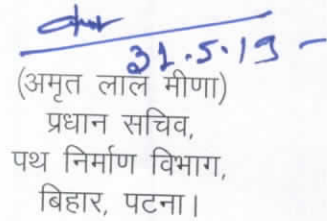 31.5.19
(अमृत लाल मीणा)
प्रधान सचिव,
पथ निर्माण विभाग,
बिहार, पटना।